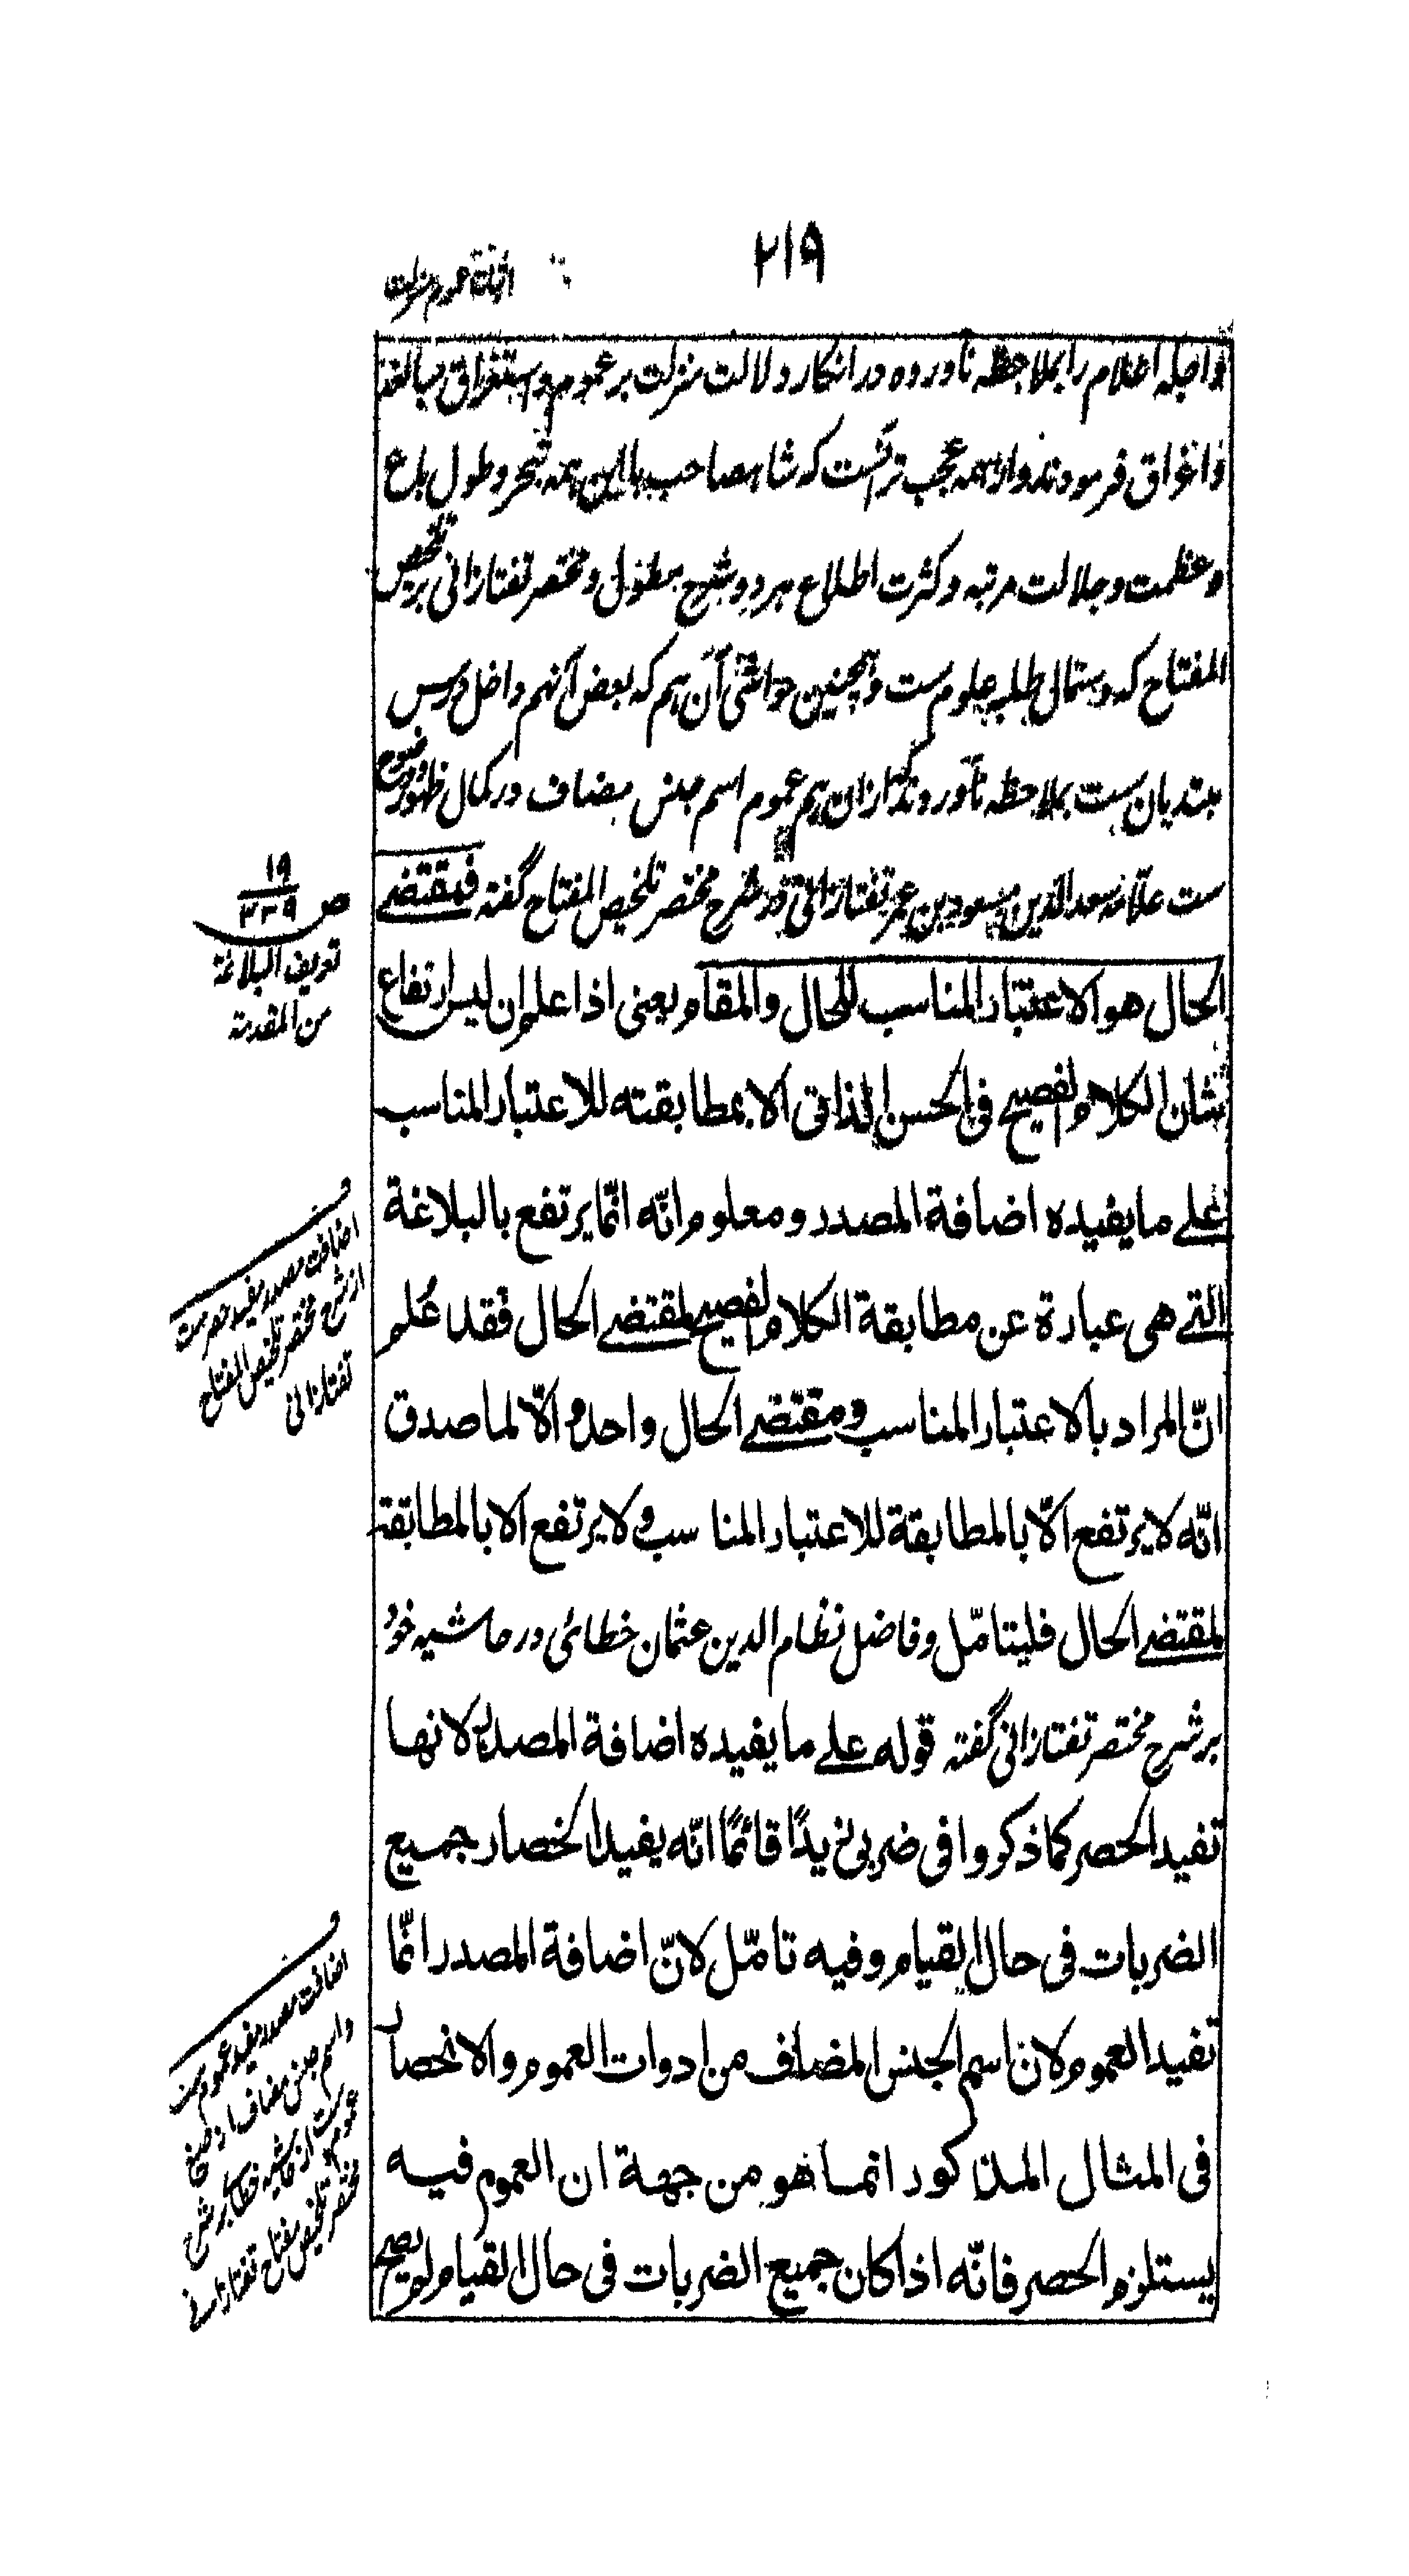 ٢١٩
اثبات عموم منزلت
و اجله اعلام را بملاحظه ناورده در انكار دلالت منزلت بر عموم و استغراق مبالغه
و اغراق فرمودند و از همه عجب تر آنست كه شاهصاحب با اين همه تبحر و طول باع
و عظمت و جلالت مرتبه و كثرت اطلاع هر دو شرح مطول و مختصر تفتازانى بر تلخيص
المفتاح كه دستمالى طلبه علوم ست و همچنين حواشى آن هم كه بعض آنهم داخل درس
مبتديان ست بملاحظه نآوردند كه ازان هم عموم اسم جنس مضاف در كمال ظهور و وضوح
ست علامه سعد الدين مسعود بن عمر تفتازانى در شرح مختصر تلخيص المفتاح گفته فمقتضے
الحال هو الاعتبار المناسب للحال والمقام يعنى اذا علم ان ليس ارتفاع
شان الكلام الفصيح فى الحسن الذاتى الا بمطابقته للاعتبار المناسب
علے ما يفيده اضافة المصدر و معلوم انّه انّما يرتفع بالبلاغة
التے هى عبارة عن مطابقة الكلام الفصيح لمقتضے الحال فقد عُلم
انّ المراد بالاعتبار المناسب ومقتضے الحال واحد و الّا لما صدق
انّه لا يرتفع الّا بالمطابقة للاعتبار المناسب و لا يرتفع الا بالمطابقة
لمقتضے الحال فليتامّل و فاضل نظام الدين عثمان خطائى در حاشيه خود
بر شرح مختصر تفتازانى گفته قوله علے ما يفيده اضافة المصدر لانها
تفيد الحصر كما ذكروا فى ضربى زيدًا قائمًا انّه يفيد انحصار جميع
الضربات فى حال القيام وفيه تامّل لانّ اضافة المصدر انّما
تفيد العموم لان اسم الجنس المضاف من ادوات العموم و الانحصار
فى المثال المذكور انما هو من جهة ان العموم فيه
يستلزم الحصر فانّه اذا كان جميع الضربات فى حال القيام لم يصح
ص ١٩
٣٣٩
تعريف البلاغة
من المقدمة
ف
اضافت مصدر مفيد حصرست
از شرح مختصر تلخيص المفتاح
تفتازانى
ف
اضافت مصدر مفيد عموم ست
و اسم جنس مضاف از صيغ
عموم ست از حاشيه خطائى بر شرح
مختصر تلخيص مفتاح تفتازانى